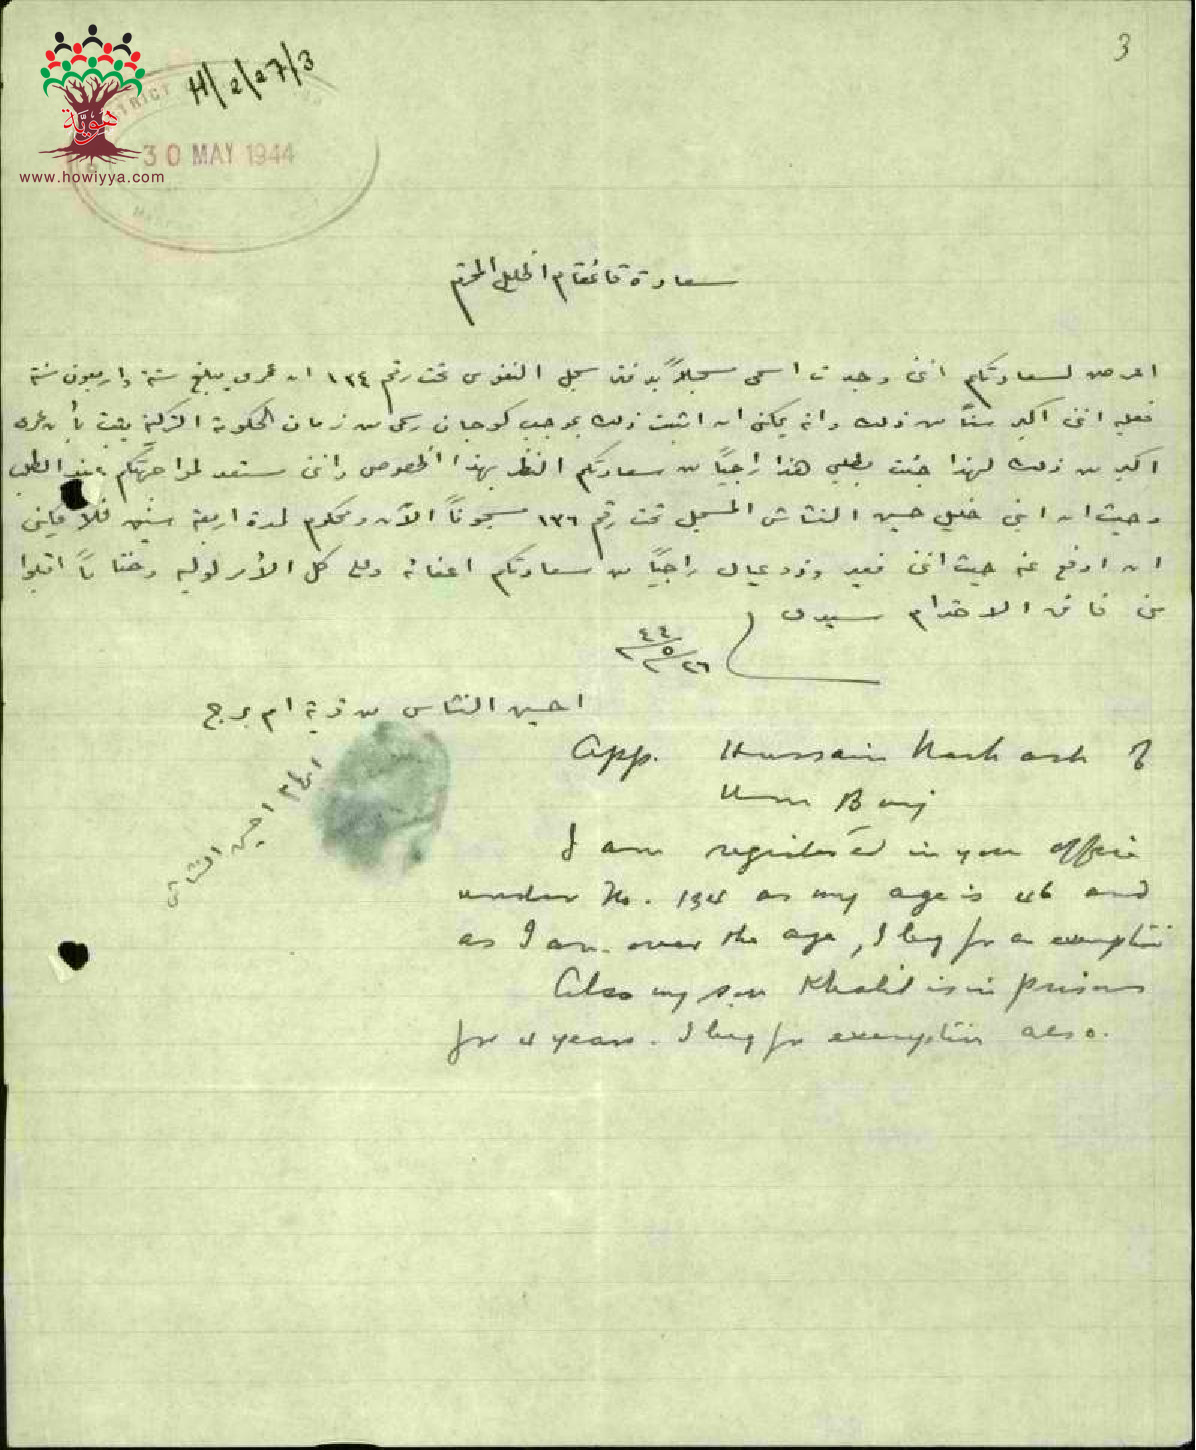 3
H/2/27/3
DISTRICT
30 MAY 1944
هوية
www.howiyya.com
سعادة قائمقام الخليل المحترم
اعرض لسعادتكم انني وجدت اسمي مسجلاً بدفتر سجل النفوس تحت رقم ١٣٤ ان عمري يبلغ ستة واربعون سنة
فعليه انني اكبر سناً من ذلك وانه يمكني ان اثبت ذلك بموجب كوجان رسمي من زمان الحكومة التركية يثبت بأن عمري
اكبر من ذلك لهذا جئت بطلبي هذا راجياً من سعادتكم النظر بهذا الخصوص وانني مستعد لمواجهتكم عند الطلب
وحيث ان ابني خليل حسين النشاش المسجل تحت رقم ١٣٦ مسجوناً الآن ومحكوم لمدة اربعة سنين فلا يمكني
ان ادفع عنه حيث انني فقير وذو عيال راجياً من سعادتكم اعفائه ولكم كل الأمر لوليه وختاماً اقبلوا
مني فائق الاحترام سيدي
٢٦/٥/٤٤
احسين النشاش من قرية ام برج
ابهام احسين النشاش
App. Hussain Nashash of
Umm Burj
I am registered in your office
under No. 134 as my age is 46 and
as I am over the age, I beg for an exemption
Also my son Khalil is in prison
for 4 years. I beg for exemption also.